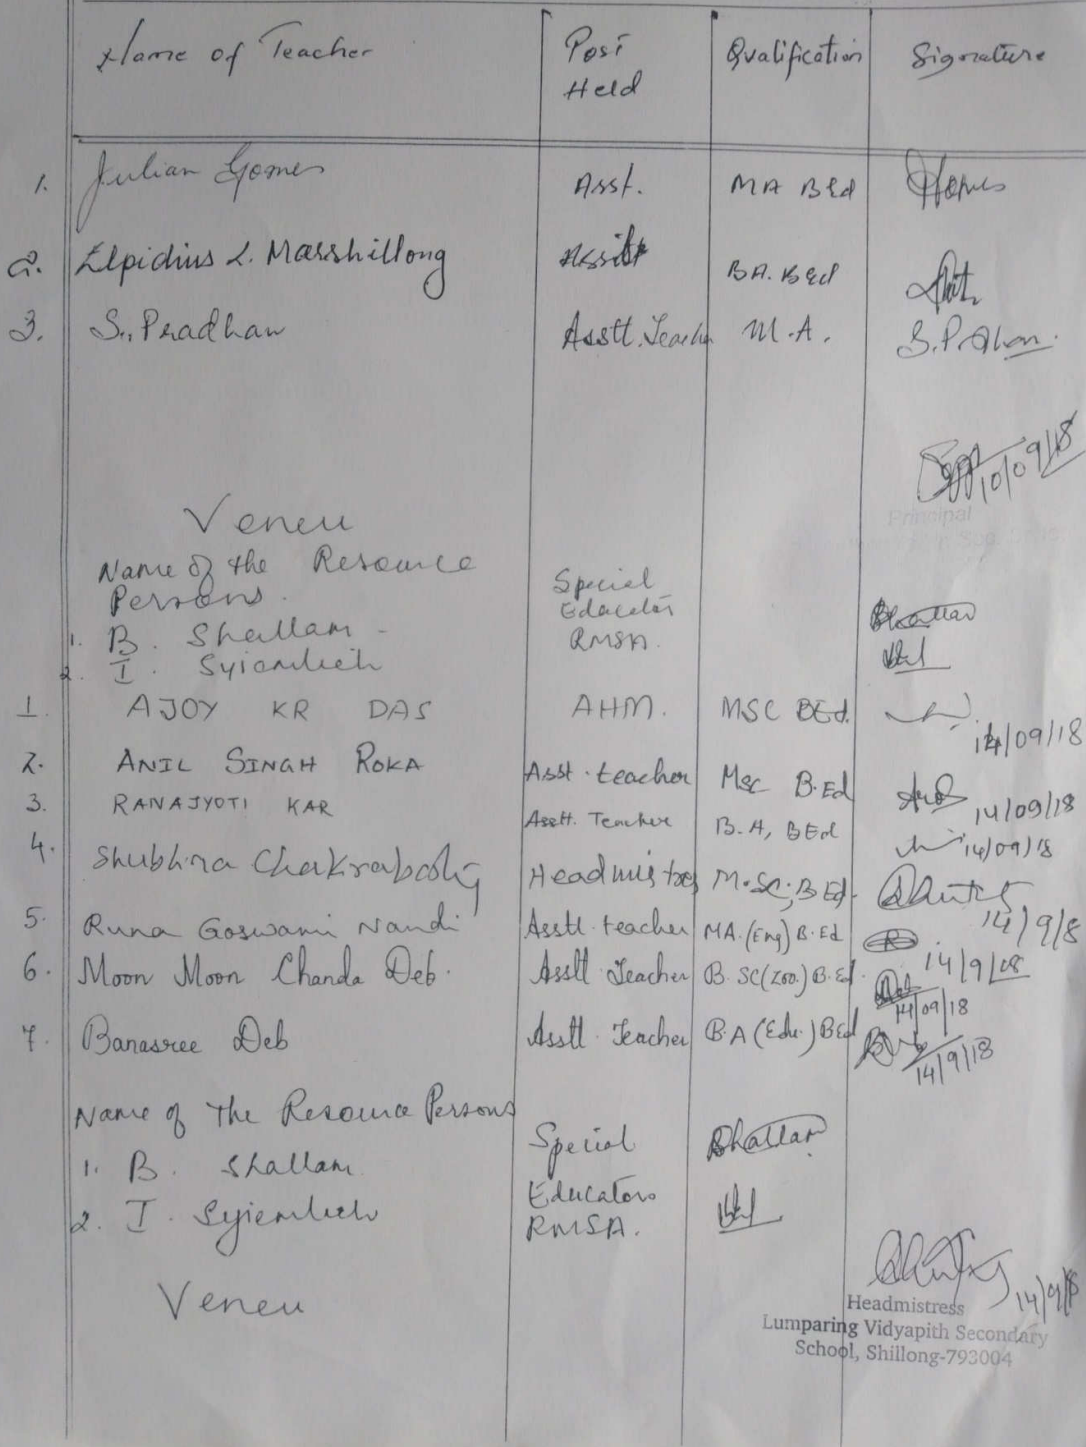 Name of Teacher Post Held Qualification Signature
1. Julian Gomes Asst. MA BEd Gomes
2. Elpidius L. Marshillong Assitt BA. BEd
3. S. Pradhan Asstt. Teacher M.A. S.P.dhan.
10/09/18
Principal
Veneu
Name of the Resource
Persons.
Special
Educator
RMSA.
1. B. Shallam - Bhallam
2. I. Syiemlieh
1. AJOY KR DAS AHM. MSC BEd. 14/09/18
2. ANIL SINGH ROKA Asst. teacher Msc B.Ed 14/09/18
3. RANAJYOTI KAR Asstt. Teacher B.A, BEd 14/09/18
4. Shubhra Chakraborty Headmistres M.Sc; B Ed. 14/9/8
5. Runa Goswami Nandi Asstt. teacher MA. (Eng) B.Ed 14/9/08
6. Moon Moon Chanda Deb. Asstt Teacher B. SC (Zoo.) B.Ed. 14/09/18
7. Banasree Deb Asstt. Teacher B.A (Edu.) BEd 14/9/18
Name of The Resource Persons
1. B. Shallam Special Bhallam
2. I. Syiemlieh Educators
RMSA.
14/9/8
Veneu
Headmistress
Lumparing Vidyapith Secondary
School, Shillong-793004